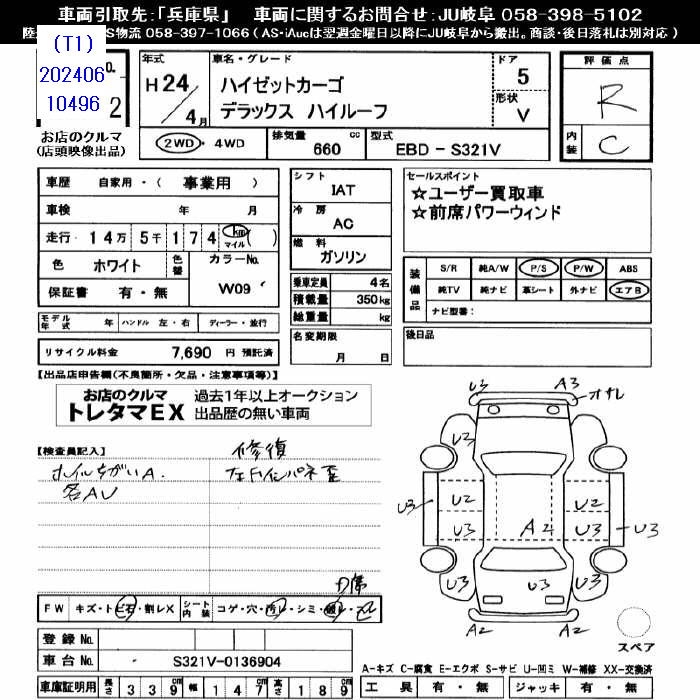 車両引取先:「兵庫県」 車両に関するお問合せ:JU岐阜 058-398-5102
S物流 058-397-1066 ( AS・iAucは翌週金曜日以降にJU岐阜から搬出。商談・後日落札は別対応 )
(T1)
202406
10496
2
お店のクルマ
(店頭映像出品)
年式
H 24 / 4 月
車名・グレード
ハイゼットカーゴ
デラックス ハイルーフ
ドア
5
形状
V
評価点
R
内装
C
2WD・4WD
排気量 660 cc
型式 EBD - S321V
車歴 自家用・( 事業用 )
車検 年 月
走行・ 14万 5千 1 7 4 km マイル ( )
色 ホワイト 色替 カラーNo. W09
保証書 有・無
モデル年式 年 ハンドル 左・右 ディーラー・並行
リサイクル料金 7,690 円 預託済
シフト
IAT
冷房
AC
燃料
ガソリン
乗車定員 4名
積載量 350kg
総重量 kg
名変期限
月 日
セールスポイント
☆ユーザー買取車
☆前席パワーウィンド
装備品
S/R 純A/W P/S P/W ABS
純TV 純ナビ 革シート 外ナビ エアB
ナビ型番:
後日品
【出品店申告欄(不良箇所・欠品・注意事項等)】
お店のクルマ
トレタマEX
過去1年以上オークション
出品歴の無い車両
【検査員記入】
修復
ホイルちがいA.
左Fインパネ歪
各AU
U3 A3
U3
U3
U3 U2 U2
U3 A2 U3 U3
U3 U3
A2 A2
スペア
D席
FW キズ・ト ビ石・割レX シート内装 コゲ・穴・汚レ・シミ・
登録 No.
車台 No. S321V-0136904
車庫証明用 長さ 3 3 9 幅 1 4 7 高さ 1 8 9
A-キズ C-腐食 E-エクボ S-サビ U-凹ミ W-補修 XX-交換済
工具 有・無 ジャッキ 有・無